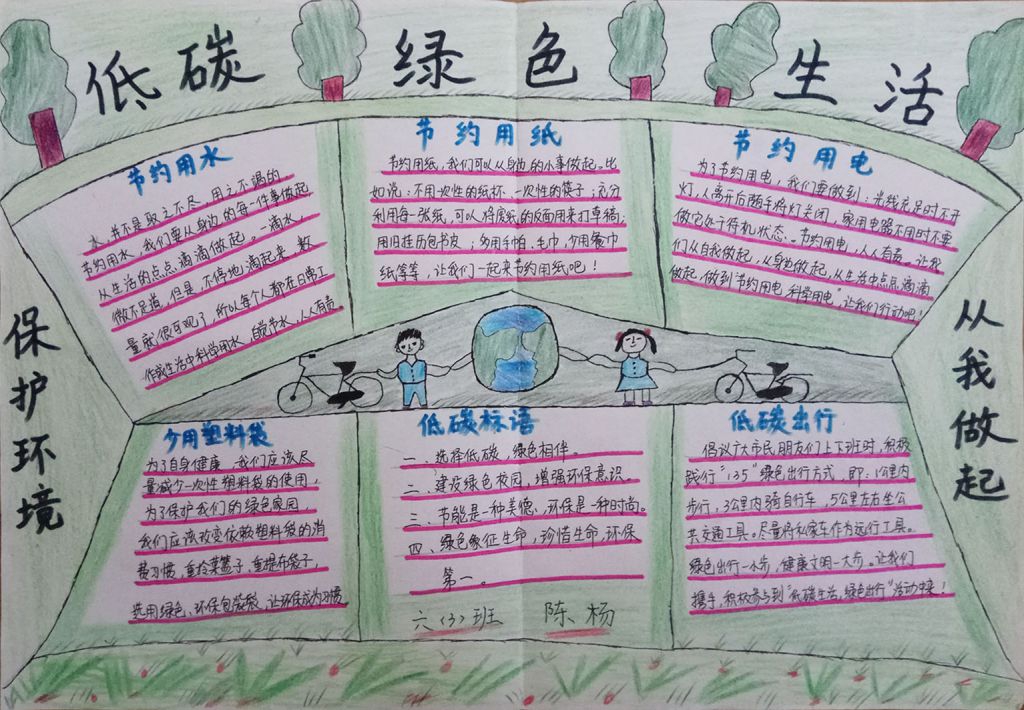 低碳 绿色 生活
保护环境
从我做起
节约用水
水，并不是取之不尽、用之不竭的，
节约用水，我们要从身边的每一件事做起，
从生活的点点滴滴做起。一滴水，
微不足道，但是，不停地滴起来，数
量就很可观了，所以每个人都在日常工
作或生活中科学用水，自觉节水，人人有责。
节约用纸
节约用纸，我们可以从身边的小事做起。比
如说：不用一次性的纸杯、一次性的筷子；充分
利用每一张纸，可以将废纸的反面用来打草稿；
用旧挂历包书皮；多用手帕，毛巾，少用餐巾
纸等等，让我们一起来节约用纸吧！
节约用电
为了节约用电，我们要做到：光线充足时不开
灯，人离开后随手将灯关闭，家用电器不用时不要
做它处于待机状态。节约用电，人人有责，让我
们从自我做起，从身边做起，从生活中点点滴滴
做起，做到“节约用电，科学用电”让我们行动吧！
少用塑料袋
为了自身健康，我们应该尽
量减少一次性塑料袋的使用，
为了保护我们的绿色家园，
我们应该改变依赖塑料袋的消
费习惯，重拎菜篮子，重提布袋子，
选用绿色、环保包装袋，让环保成为习惯
低碳标语
一、选择低碳，绿色相伴。
二、建设绿色校园，增强环保意识。
三、节能是一种美德，环保是一种时尚。
四、绿色象征生命，珍惜生命，环保
第一。
六（3）班 陈杨
低碳出行
倡议广大市民朋友们上下班时，积极
践行“135”绿色出行方式，即：1公里内
步行，3公里内骑自行车，5公里左右坐公
共交通工具。尽量将私家车作为远行工具。
绿色出行一小步，健康文明一大步。让我们
携手，积极参与到“低碳生活，绿色出行”活动中来！